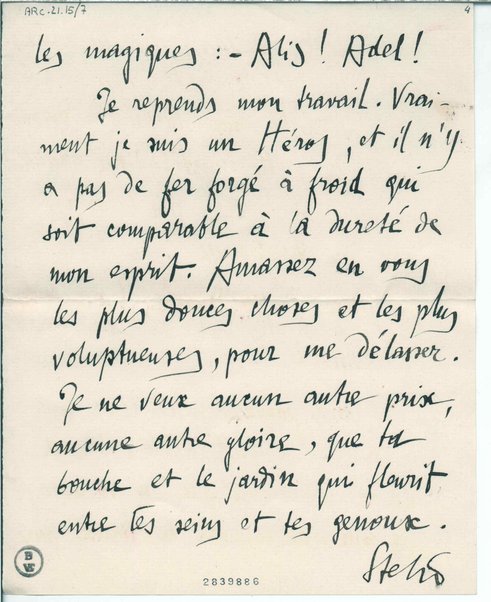 ARC-21.15/7
4
les magiques : - Alis ! Adel !
Je reprends mon travail. Vrai-
ment je suis un Héros, et il n'y
a pas de fer forgé à froid qui
soit comparable à la dureté de
mon esprit. Amassez en vous
les plus douces choses et les plus
voluptueuses, pour me délasser.
Je ne veux aucun autre prix,
aucune autre gloire, que ta
bouche et le jardin qui fleurit
entre tes seins et tes genoux.
Stelio
2839886